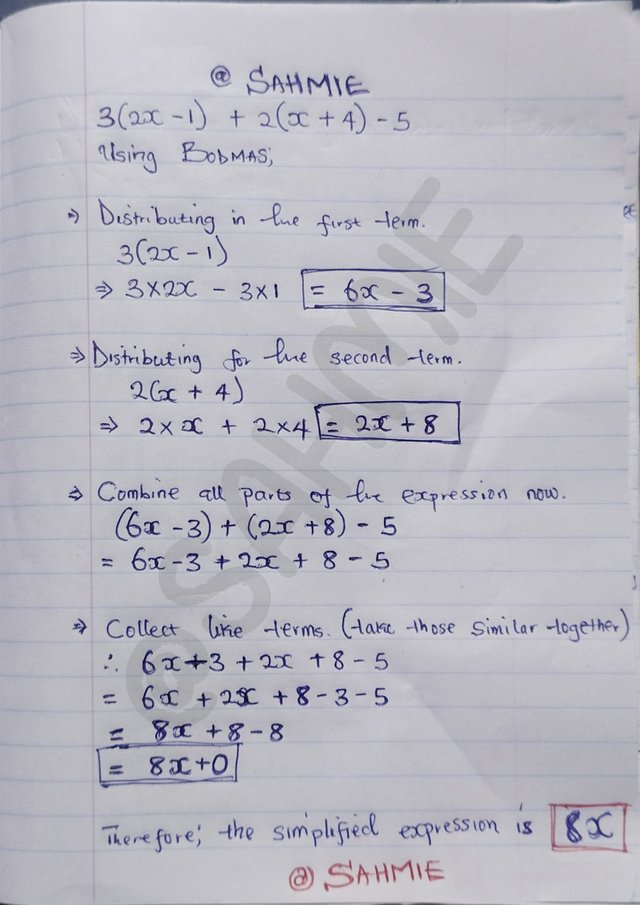 @ SAHMIE
3(2x - 1) + 2(x + 4) - 5
Using BODMAS;
⇒ Distributing in the first term.
3(2x - 1)
⇒ 3 × 2x - 3 × 1 = 6x - 3
⇒ Distributing for the second term.
2(x + 4)
⇒ 2 × x + 2 × 4 = 2x + 8
⇒ Combine all parts of the expression now.
(6x - 3) + (2x + 8) - 5
= 6x - 3 + 2x + 8 - 5
⇒ Collect like terms. (take those similar together)
∴ 6x + 3 + 2x + 8 - 5
= 6x + 2x + 8 - 3 - 5
= 8x + 8 - 8
= 8x + 0
Therefore; the simplified expression is 8x
@ SAHMIE
@SAHMIE